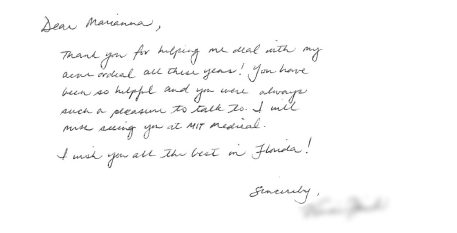 Dear Marianna,
Thank you for helping me deal with my
acne ordeal all these years! You have
been so helpful and you were always
such a pleasure to talk to. I will
miss seeing you at MIT Medical.
I wish you all the best in Florida!
Sincerely,